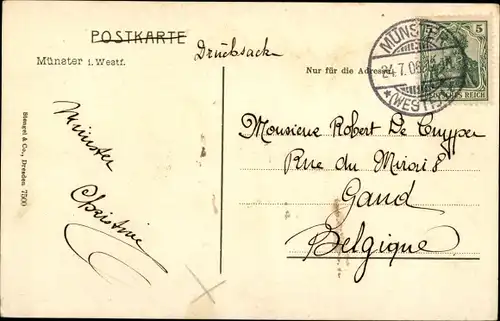 POSTKARTE
Drucksache
Münster i. Westf.
Nur für die Adresse.
MÜNSTER
24.7.06
*(WESTF.)
5
DEUTSCHES REICH
Münster
Christine
Monsieur Robert De Cuyper
Rue du Miroir 8
Gand
Belgique
Stengel & Co., Dresden 7500